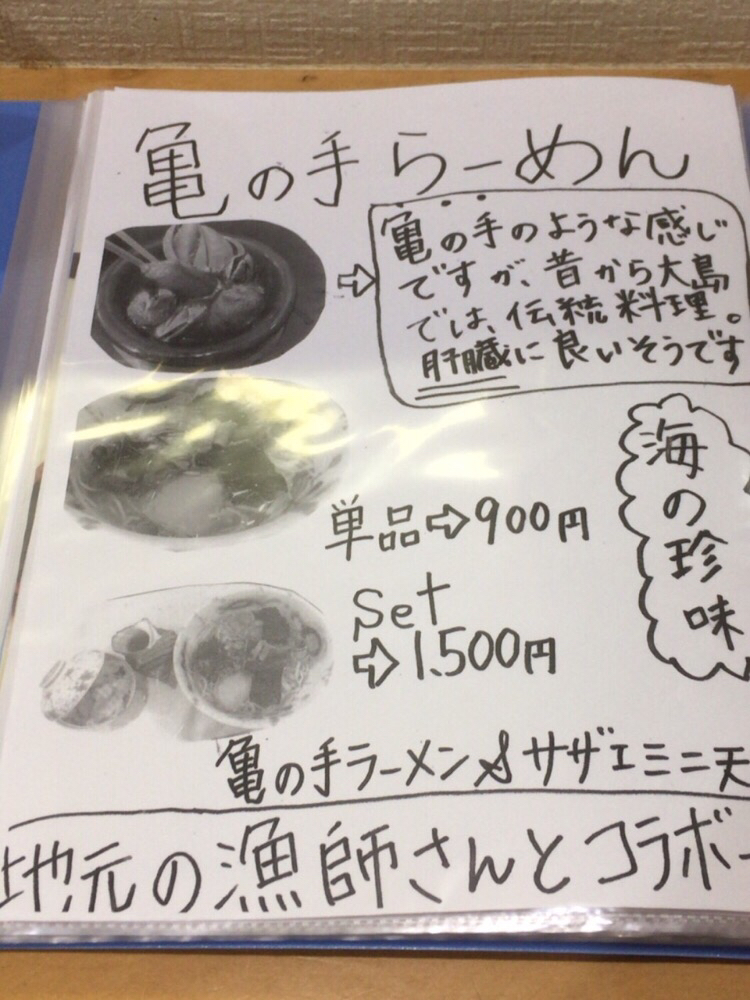 亀の手らーめん
亀の手のような感じ
ですが、昔から大島
では、伝統料理。
肝臓に良いそうです
海の珍味
単品⇨900円
Set
⇨1.500円
亀の手ラーメン&サザエミニ天
地元の漁師さんとコラボー